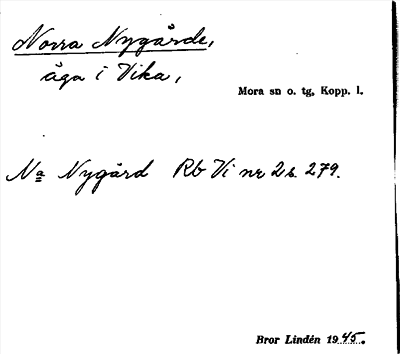 Norra Nygårde,
äga i Vika,
Mora sn o. tg, Kopp. l.
Na Nygård Rb Vi nr 2 s. 279.
Bror Lindén 1945.